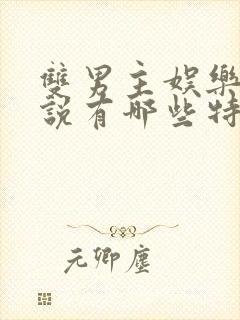 雙男主娛樂
說有哪些特
元卿塵